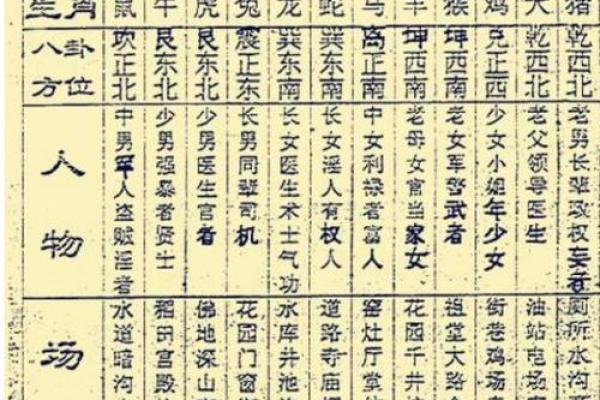 生肖 鼠 牛 虎 兔 龙 蛇 马 羊 猴 鸡 犬 猪
八卦
方位
坎正北
艮东北
艮东北
震正东
巽东南
巽东南
离正南
坤西南
坤西南
兑正西
乾西北
乾西北
人物
中男军人盗贼淫者
少男强暴者贤士
少男医生官者
长男同辈司机
长女医生术士气功
长女淫人有权人
中女利禄者富人
老母女官当家女
老女军警武者
少女小姐年少女
老父领导医生
老男长辈政权妄者
场
水道暗沟
稻田宫殿
佛地深山
花园门窗
水库井池
道路寺庙
窑灶厅堂
花园千井
祖堂大路
街巷鸡场
油站电场
厕所水沟